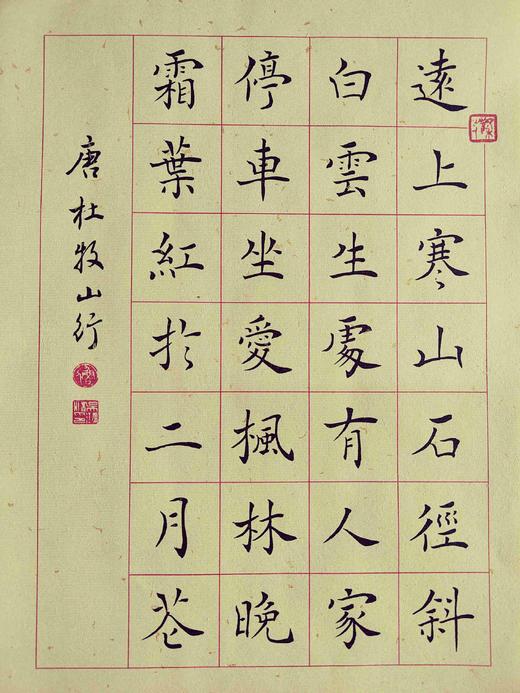 遠上寒山石徑斜
白雲生處有人家
停車坐愛楓林晚
霜葉紅於二月花
唐杜牧山行